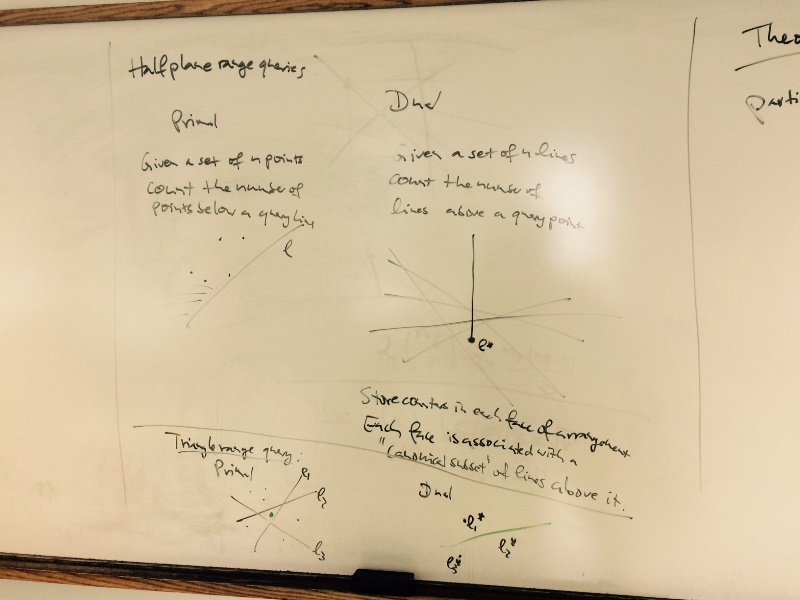 Halfplane range queries
Primal
Given a set of n points
count the number of
points below a query line
l
Dual
Given a set of n lines
count the number of
lines above a query point
l*
Store counters in each face of arrangement
Each face is associated with a
"canonical subset" of lines above it.
Triangle range query:
Primal
l1
l2
l3
Dual
l1*
l2*
l3*
Theo
parti